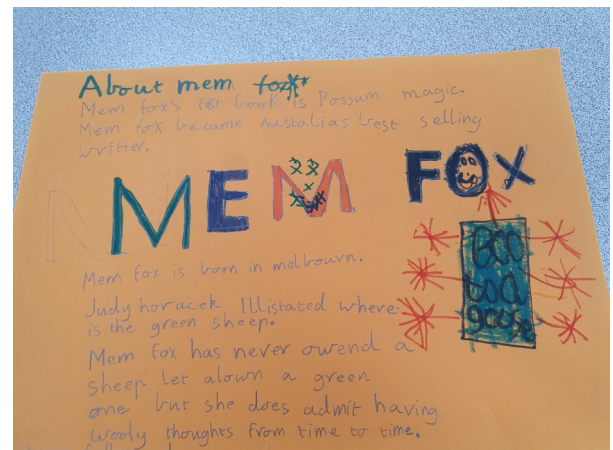 About mem fox
Mem fox's fist book is Possum magic.
Mem fox became Austalias best selling
writter.
MEM FOX
Mem fox is born in melbourn.
Judy horacek Illistated where
is the green sheep.
Mem fox has never owend a
sheep let alown a green
one but she does admit having
wooly thoughts from time to time.
boo
goose